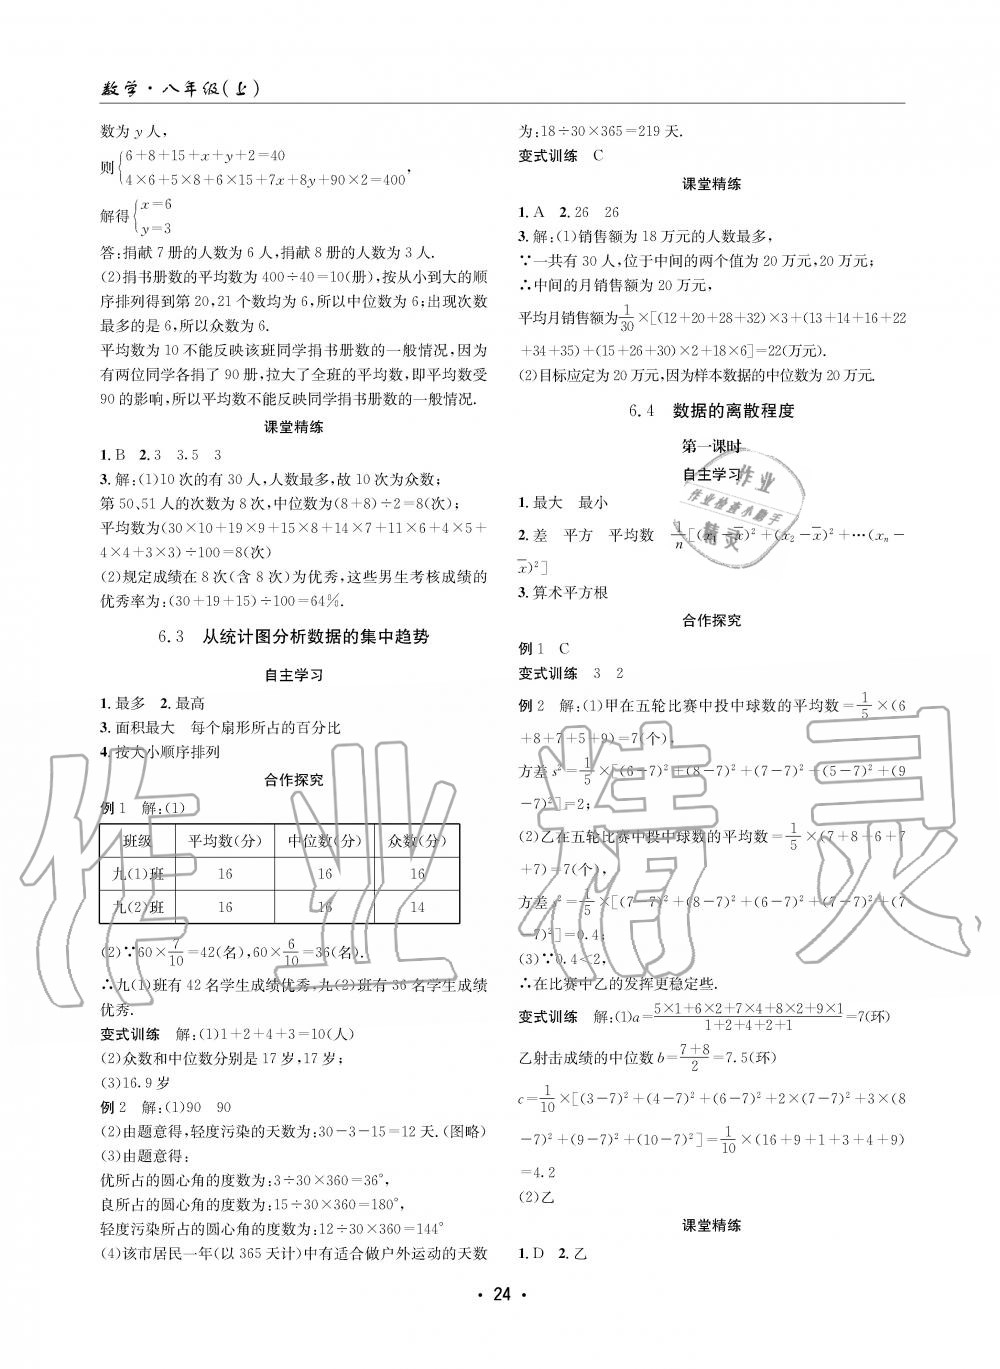 数学·八年级(上)
数为 y 人,
则{6+8+15+x+y+2=40
4×6+5×8+6×15+7x+8y+90×2=400,
解得{x=6
y=3
答:捐献 7 册的人数为 6 人,捐献 8 册的人数为 3 人.
(2)捐书册数的平均数为 400÷40=10(册),按从小到大的顺
序排列得到第 20,21 个数均为 6,所以中位数为 6;出现次数
最多的是 6,所以众数为 6.
平均数为 10 不能反映该班同学捐书册数的一般情况,因为
有两位同学各捐了 90 册,拉大了全班的平均数,即平均数受
90 的影响,所以平均数不能反映同学捐书册数的一般情况.
课堂精练
1. B 2. 3 3.5 3
3. 解:(1)10 次的有 30 人,人数最多,故 10 次为众数;
第 50、51 人的次数为 8 次,中位数为(8+8)÷2=8(次);
平均数为(30×10+19×9+15×8+14×7+11×6+4×5+
4×4+3×3)÷100=8(次)
(2)规定成绩在 8 次(含 8 次)为优秀,这些男生考核成绩的
优秀率为:(30+19+15)÷100=64%.
6.3 从统计图分析数据的集中趋势
自主学习
1. 最多 2. 最高
3. 面积最大 每个扇形所占的百分比
4. 按大小顺序排列
合作探究
例 1 解:(1)
班级 平均数(分) 中位数(分) 众数(分)
九(1)班 16 16 16
九(2)班 16 16 14
(2)∵60×7/10=42(名),60×6/10=36(名).
∴九(1)班有 42 名学生成绩优秀,九(2)班有 36 名学生成绩
优秀.
变式训练 解:(1)1+2+4+3=10(人)
(2)众数和中位数分别是 17 岁,17 岁;
(3)16.9 岁
例 2 解:(1)90 90
(2)由题意得,轻度污染的天数为:30-3-15=12 天.(图略)
(3)由题意得:
优所占的圆心角的度数为:3÷30×360=36°,
良所占的圆心角的度数为:15÷30×360=180°,
轻度污染所占的圆心角的度数为:12÷30×360=144°
(4)该市居民一年(以 365 天计)中有适合做户外运动的天数
为:18÷30×365=219 天.
变式训练 C
课堂精练
1. A 2. 26 26
3. 解:(1)销售额为 18 万元的人数最多,
∵一共有 30 人,位于中间的两个值为 20 万元,20 万元;
∴中间的月销售额为 20 万元,
平均月销售额为1/30×[(12+20+28+32)×3+(13+14+16+22
+34+35)+(15+26+30)×2+18×6]=22(万元).
(2)目标应定为 20 万元,因为样本数据的中位数为 20 万元.
6.4 数据的离散程度
第一课时
自主学习
1. 最大 最小
2. 差 平方 平均数 1/n[(x₁-x̅)²+(x₂-x̅)²+…(xₙ-
x̅)²]
3. 算术平方根
合作探究
例 1 C
变式训练 3 2
例 2 解:(1)甲在五轮比赛中投中球数的平均数=1/5×(6
+8+7+5+9)=7(个),
方差 s²=1/5×[(6-7)²+(8-7)²+(7-7)²+(5-7)²+(9
-7)²]=2;
(2)乙在五轮比赛中投中球数的平均数=1/5×(7+8+6+7
+7)=7(个),
方差 s²=1/5×[(7-7)²+(8-7)²+(6-7)²+(7-7)²+(7
-7)²]=0.4;
(3)∵0.4<2,
∴在比赛中乙的发挥更稳定些.
变式训练 解:(1)a=5×1+6×2+7×4+8×2+9×1/1+2+4+2+1=7(环)
乙射击成绩的中位数 b=7+8/2=7.5(环)
c=1/10×[(3-7)²+(4-7)²+(6-7)²+2×(7-7)²+3×(8
-7)²+(9-7)²+(10-7)²]=1/10×(16+9+1+3+4+9)
=4.2
(2)乙
课堂精练
1. D 2. 乙
· 24 ·
作业
作业检查小助手
精灵
作业精灵